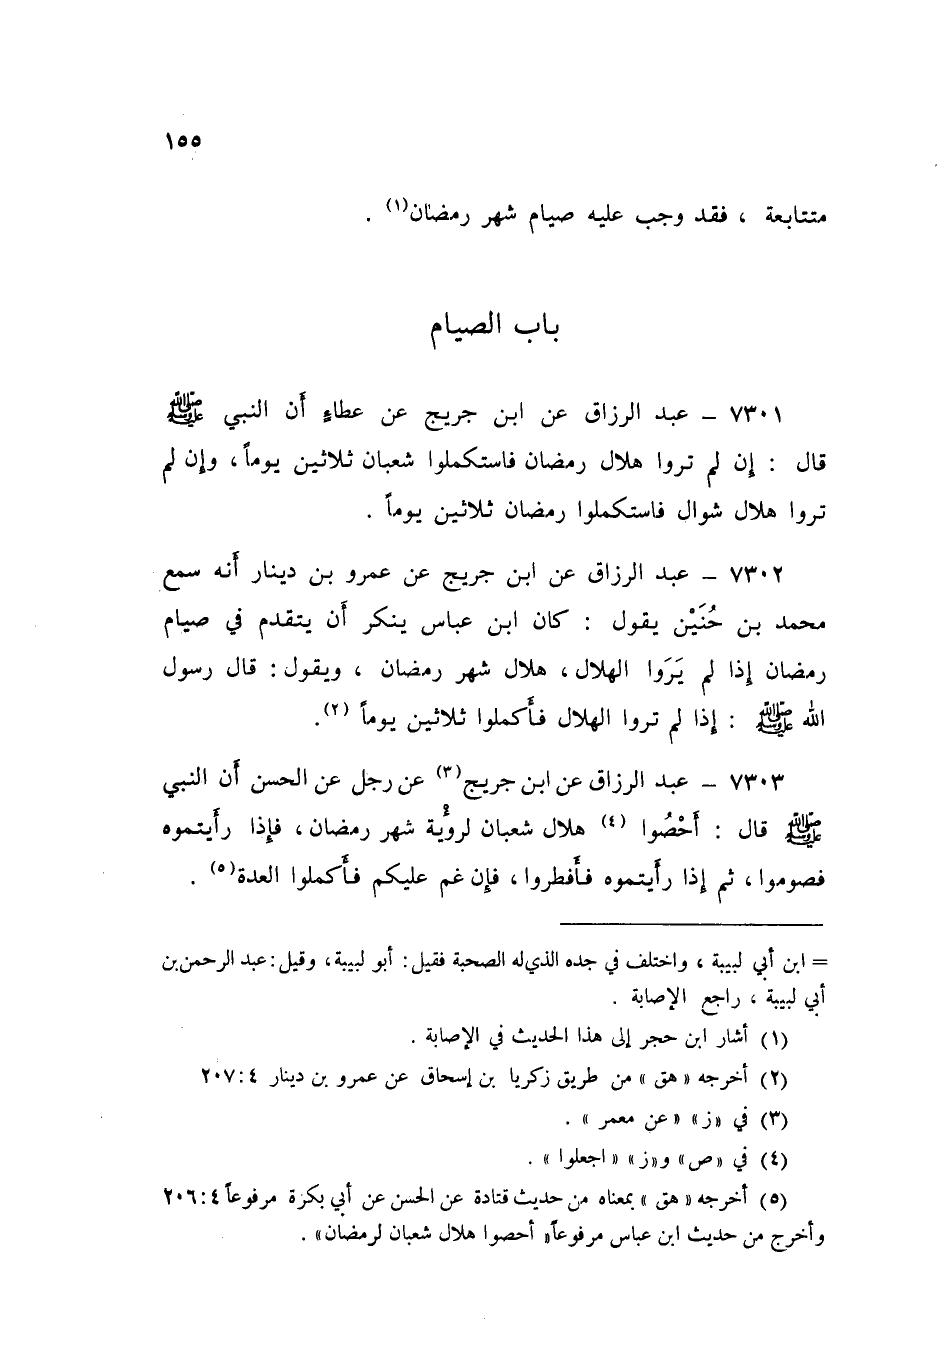 ١٥٥
متتابعة ، فقد وجب عليه صيام شهر رمضان(١) .
باب الصيام
٧٣٠١ – عبد الرزاق عن ابن جريج عن عطاءٍ أَن النبي ﷺ
قال : إِن لم تروا هلال رمضان فاستكملوا شعبان ثلاثين يوماً ، وإِن لم
تروا هلال شوال فاستكملوا رمضان ثلاثين يوماً .
٧٣٠٢ – عبد الرزاق عن ابن جريج عن عمرو بن دينار أَنه سمع
محمد بن حُنَيْن يقول : كان ابن عباس ينكر أَن يتقدم في صيام
رمضان إِذا لم يَرَوا الهلال ، هلال شهر رمضان ، ويقول : قال رسول
الله ﷺ : إِذا لم تروا الهلال فأَكملوا ثلاثين يوماً (٢).
٧٣٠٣ – عبد الرزاق عن ابن جريج(٣) عن رجل عن الحسن أَن النبي
ﷺ قال : أَحْصُوا (٤) هلال شعبان لرؤْية شهر رمضان ، فإِذا رأَيتموه
فصوموا ، ثم إِذا رأَيتموه فأَفطروا ، فإِن غم عليكم فأَكملوا العدة(٥) .
= ابن أبي لبيبة ، واختلف في جده الذي له الصحبة فقيل : أبو لبيبة ، وقيل : عبد الرحمن بن
أبي لبيبة ، راجع الإصابة .
(١) أشار ابن حجر إلى هذا الحديث في الإصابة .
(٢) أخرجه « هق » من طريق زكريا بن إسحاق عن عمرو بن دينار ٤ : ٢٠٧
(٣) في «ز» «عن معمر » .
(٤) في «ص» و«ز» «اجعلوا » .
(٥) أخرجه « هق » بمعناه من حديث قتادة عن الحسن عن أبي بكرة مرفوعاً ٤ : ٢٠٦
وأخرج من حديث ابن عباس مرفوعاً« أحصوا هلال شعبان لرمضان» .